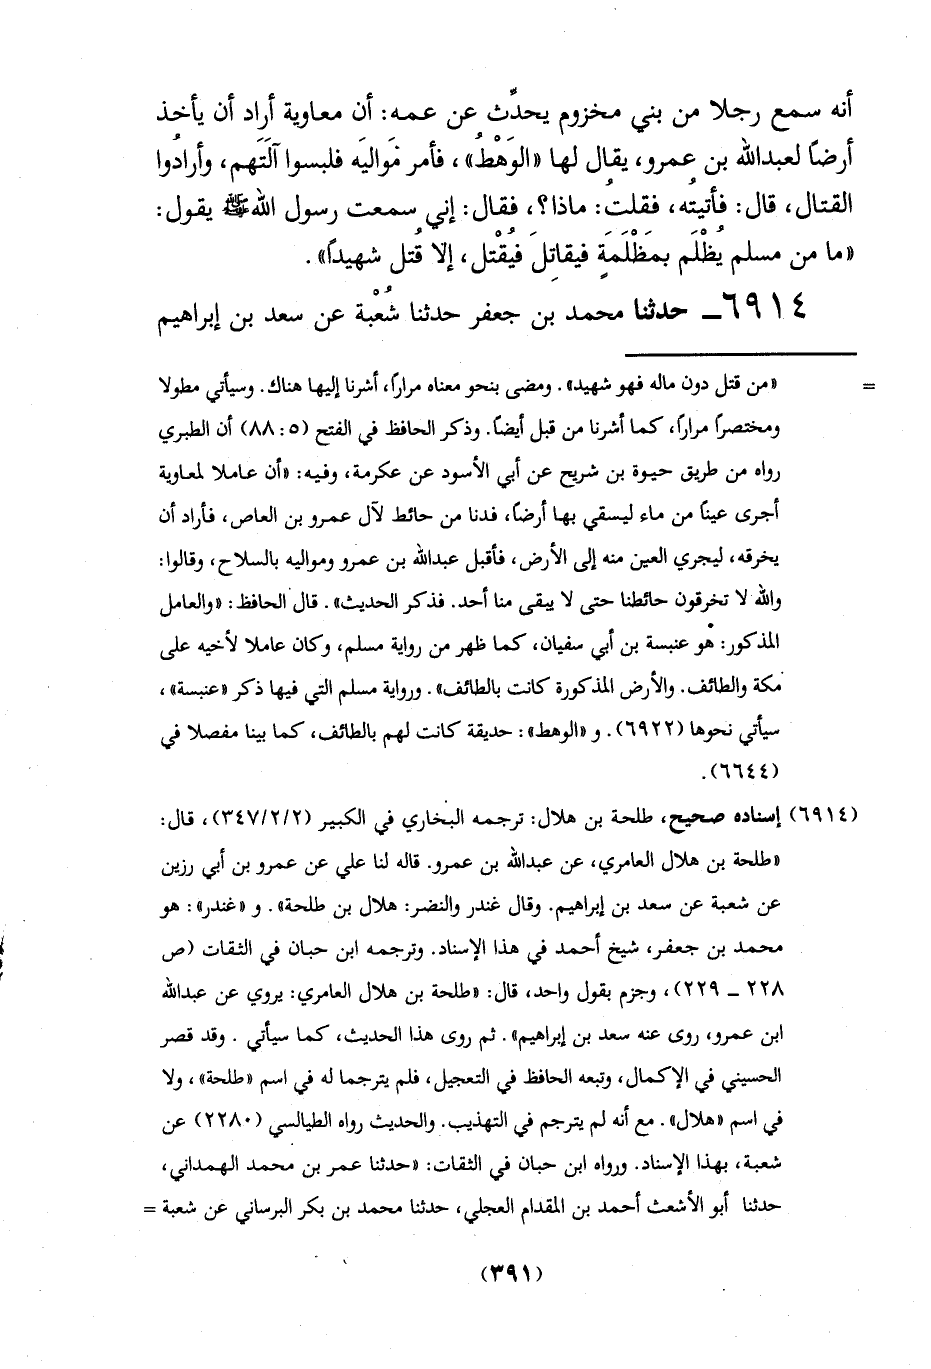 أنه سمع رجلا من بني مخزوم يحدِّث عن عمه: أن معاوية أراد أن يأخذ
أرضاً لعبدالله بن عمرو، يقال لها «الوَهْطُ»، فأمر مَواليَه فلبسوا آلَتَهم، وأرادُوا
القتال، قال: فأتيتُه، فقلتُ: ماذا؟، فقال: إني سمعت رسول الله ﷺ يقول:
«ما من مسلم يُظْلَم بمَظْلَمَةٍ فيقاتِلَ فيُقْتل، إلا قُتل شهيداً».
٦٩١٤ـ حدثنا محمد بن جعفر حدثنا شُعْبة عن سعد بن إبراهيم
= «من قتل دون ماله فهو شهيد». ومضى بنحو معناه مراراً، أشرنا إليها هناك. وسيأتي مطولا
ومختصراً مراراً، كما أشرنا من قبل أيضاً. وذكر الحافظ في الفتح (٥: ٨٨) أن الطبري
رواه من طريق حيوة بن شريح عن أبي الأسود عن عكرمة، وفيه: «أن عاملا لمعاوية
أجرى عيناً من ماء ليسقي بها أرضاً، فدنا من حائط لآل عمرو بن العاص، فأراد أن
يخرقه، ليجري العين منه إلى الأرض، فأقبل عبدالله بن عمرو ومواليه بالسلاح، وقالوا:
والله لا تخرقون حائطنا حتى لا يبقى منا أحد. فذكر الحديث». قال الحافظ: «والعامل
المذكور: هو عنبسة بن أبي سفيان، كما ظهر من رواية مسلم، وكان عاملا لأخيه على
مكة والطائف. والأرض المذكورة كانت بالطائف». ورواية مسلم التي فيها ذكر «عنبسة»،
سيأتي نحوها (٦٩٢٢). و «الوهط»: حديقة كانت لهم بالطائف، كما بينا مفصلا في
(٦٦٤٤).
(٦٩١٤) إسناده صحيح، طلحة بن هلال: ترجمه البخاري في الكبير (٣٤٧/٢/٢)، قال:
«طلحة بن هلال العامري، عن عبدالله بن عمرو. قاله لنا علي عن عمرو بن أبي رزين
عن شعبة عن سعد بن إبراهيم. وقال غندر والنضر: هلال بن طلحة». و «غندر»: هو
محمد بن جعفر، شيخ أحمد في هذا الإسناد. وترجمه ابن حبان في الثقات (ص
٢٢٨ ـ ٢٢٩)، وجزم بقول واحد، قال: «طلحة بن هلال العامري: يروي عن عبدالله
ابن عمرو، روى عنه سعد بن إبراهيم». ثم روى هذا الحديث، كما سيأتي. وقد قصر
الحسيني في الإكمال، وتبعه الحافظ في التعجيل، فلم يترجما له في اسم «طلحة»، ولا
في اسم «هلال». مع أنه لم يترجم في التهذيب. والحديث رواه الطيالسي (٢٢٨٠) عن
شعبة، بهذا الإسناد. ورواه ابن حبان في الثقات: «حدثنا عمر بن محمد الهمداني،
حدثنا أبو الأشعث أحمد بن المقدام العجلي، حدثنا محمد بن بكر البرساني عن شعبة =
(٣٩١)